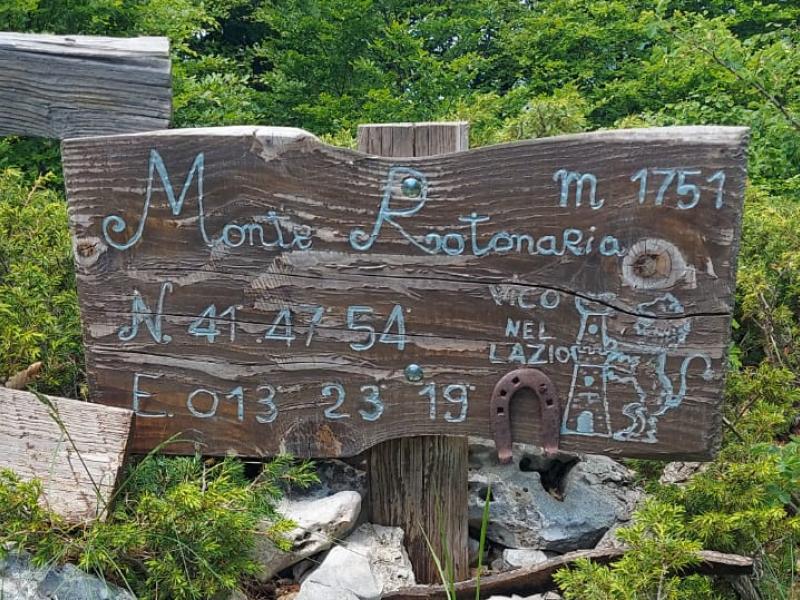 Monte Rotonaria m 1751
N. 41° 47' 54"
VICO
NEL
LAZIO
E. 013° 23' 19"